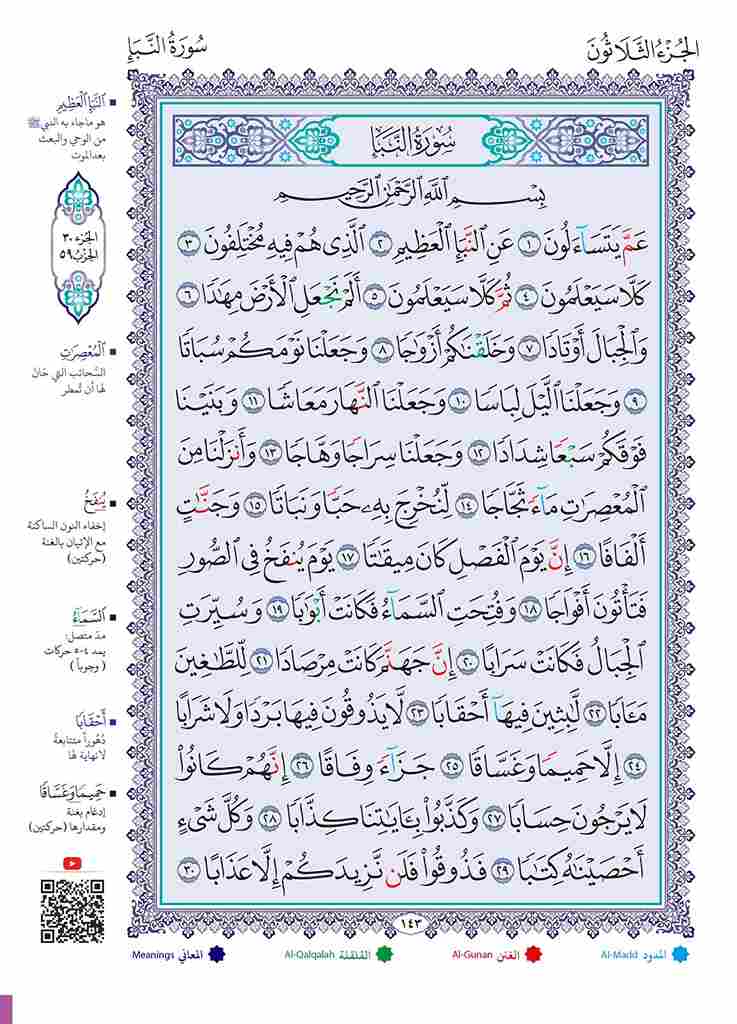 الجُزْءُ الثَّلَاثُونَ
سُورَةُ النَّبَإِ
سُورَةُ النَّبَإِ
بِسْمِ ٱللَّهِ ٱلرَّحْمَٰنِ ٱلرَّحِيمِ
عَمَّ يَتَسَآءَلُونَ ١ عَنِ ٱلنَّبَإِ ٱلْعَظِيمِ ٢ ٱلَّذِى هُمْ فِيهِ مُخْتَلِفُونَ ٣
كَلَّا سَيَعْلَمُونَ ٤ ثُمَّ كَلَّا سَيَعْلَمُونَ ٥ أَلَمْ نَجْعَلِ ٱلْأَرْضَ مِهَٰدًا ٦
وَٱلْجِبَالَ أَوْتَادًا ٧ وَخَلَقْنَٰكُمْ أَزْوَٰجًا ٨ وَجَعَلْنَا نَوْمَكُمْ سُبَاتًا
٩ وَجَعَلْنَا ٱلَّيْلَ لِبَاسًا ١٠ وَجَعَلْنَا ٱلنَّهَارَ مَعَاشًا ١١ وَبَنَيْنَا
فَوْقَكُمْ سَبْعًا شِدَادًا ١٢ وَجَعَلْنَا سِرَاجًا وَهَّاجًا ١٣ وَأَنزَلْنَا مِنَ
ٱلْمُعْصِرَٰتِ مَآءً ثَجَّاجًا ١٤ لِّنُخْرِجَ بِهِۦ حَبًّا وَنَبَاتًا ١٥ وَجَنَّٰتٍ
أَلْفَافًا ١٦ إِنَّ يَوْمَ ٱلْفَصْلِ كَانَ مِيقَٰتًا ١٧ يَوْمَ يُنفَخُ فِى ٱلصُّورِ
فَتَأْتُونَ أَفْوَاجًا ١٨ وَفُتِحَتِ ٱلسَّمَآءُ فَكَانَتْ أَبْوَٰبًا ١٩ وَسُيِّرَتِ
ٱلْجِبَالُ فَكَانَتْ سَرَابًا ٢٠ إِنَّ جَهَنَّمَ كَانَتْ مِرْصَادًا ٢١ لِّلطَّٰغِينَ
مَـَٔابًا ٢٢ لَّٰبِثِينَ فِيهَآ أَحْقَابًا ٢٣ لَّا يَذُوقُونَ فِيهَا بَرْدًا وَلَا شَرَابًا
٢٤ إِلَّا حَمِيمًا وَغَسَّاقًا ٢٥ جَزَآءً وِفَاقًا ٢٦ إِنَّهُمْ كَانُوا۟
لَا يَرْجُونَ حِسَابًا ٢٧ وَكَذَّبُوا۟ بِـَٔايَٰتِنَا كِذَّابًا ٢٨ وَكُلَّ شَىْءٍ
أَحْصَيْنَٰهُ كِتَٰبًا ٢٩ فَذُوقُوا۟ فَلَن نَّزِيدَكُمْ إِلَّا عَذَابًا ٣٠
ٱلنَّبَإِ ٱلْعَظِيمِ
هو ماجاء به النبي ﷺ
من الوحي والبعث
بعد الموت
الجزء ٣٠
الحزب ٥٩
ٱلْمُعْصِرَٰتِ
السَّحائب التي حَانَ
لها أن تُمطر
يُنفَخُ
إخفاء النون الساكنة
مع الإتيان بالغنة
(حركتين)
ٱلسَّمَآءُ
مدّ متصل:
يمد ٤-٥ حركات
( وجوباً )
أَحْقَابًا
دُهُوراً متتابعةً
لانهاية لها
حَمِيمًا وَغَسَّاقًا
إدغام بغنة
ومقدارها (حركتين)
١٤٣
المدود Al-Madd
الغنن Al-Gunan
القلقلة Al-Qalqalah
المعاني Meanings